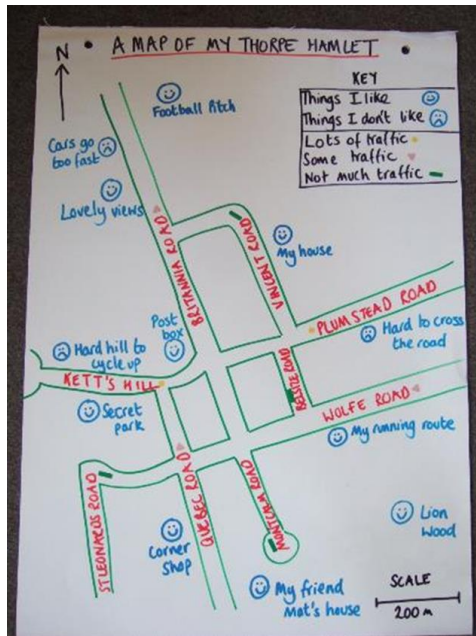 N
A MAP OF MY THORPE HAMLET
KEY
Things I like
Things I don't like
Lots of traffic
Some traffic
Not much traffic
Football Pitch
Cars go
too fast
Lovely views
BRITANNIA ROAD
VINCENT ROAD
My house
Post
box
PLUMSTEAD ROAD
Hard to cross
the road
Hard hill to
cycle up
KETT'S HILL
BELSIZE ROAD
Secret
park
WOLFE ROAD
My running route
ST LEONARDS ROAD
QUEBEC ROAD
MONTCALM ROAD
Corner
shop
Lion
Wood
My friend
Mat's house
SCALE
200m